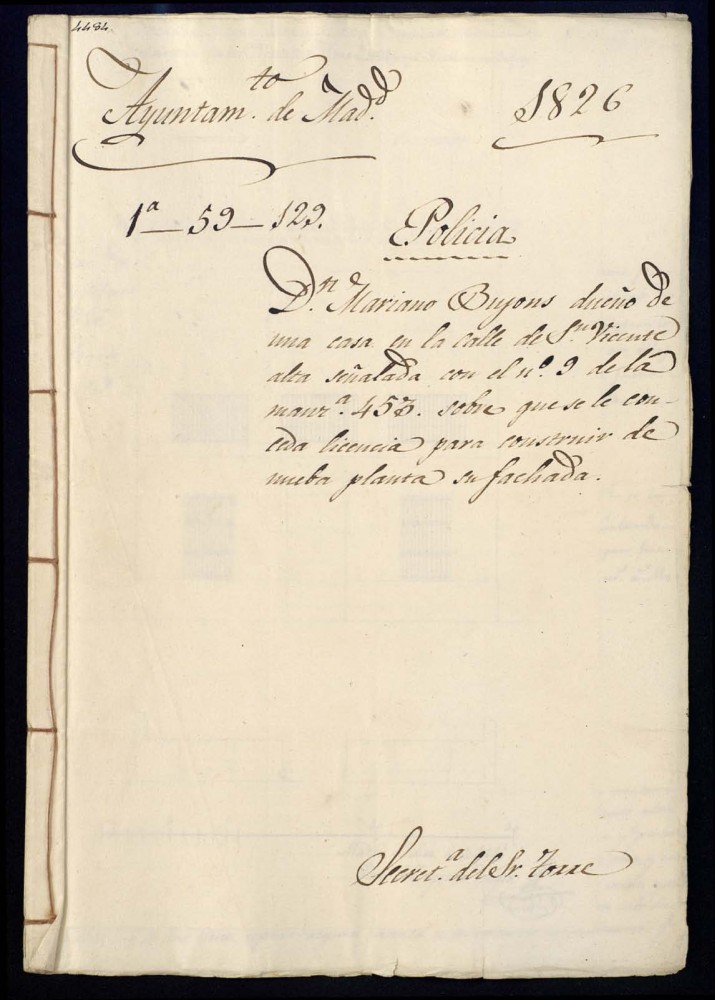 4484.
Ayuntam.to de Mad.d 1826
1a—59—129.
Policia
D.n Mariano Bujons dueño de
una casa en la calle de S.n Vicente
alta señalada con el nº. 9 de la
manz.a 457. sobre que se le con-
ceda licencia para construir de
nueba planta su fachada.
Secret.a del Sr. Torre